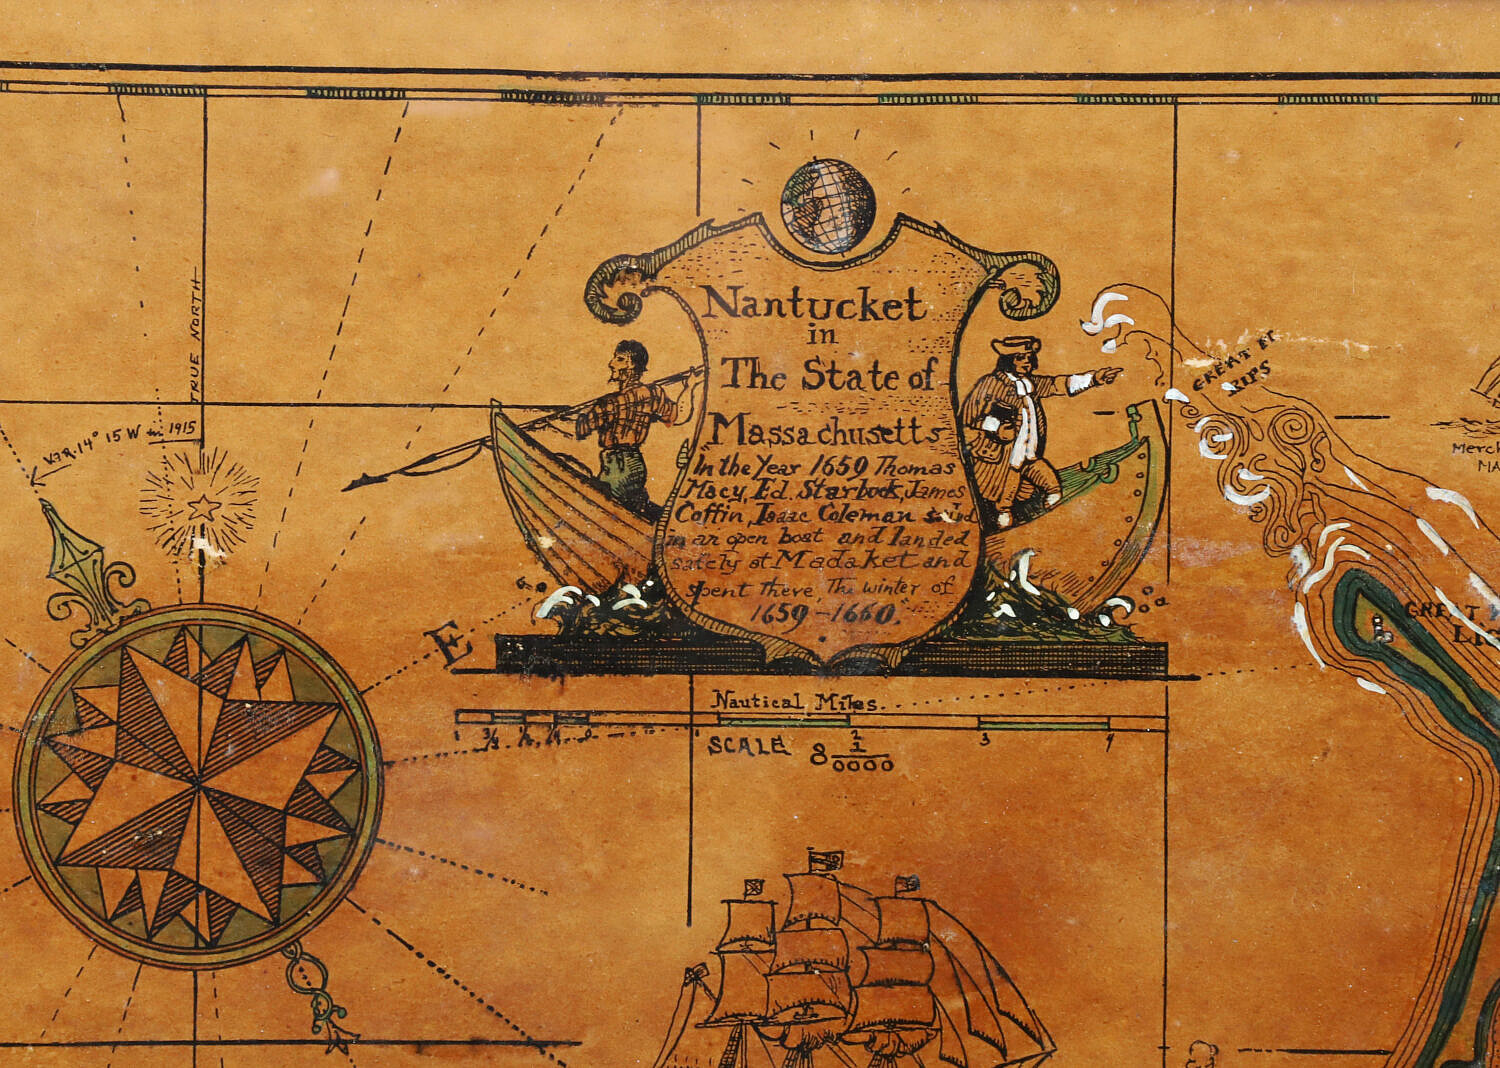 Nantucket
in
The State of
Massachusetts
"In the Year 1659 Thomas
Macy, Ed. Starbuck, James
Coffin, Isaac Coleman sailed
in an open boat and landed
safely at Madaket and
spent there, The winter of
1659-1660."
TRUE NORTH
Var. 14° 15 W in 1915
E
GREAT PT
RIPS
Merch
MA
GREAT
LI
Nautical Miles.
1 3/4 1/2 1/4 0 1 2 3 4
SCALE 8 1/0000